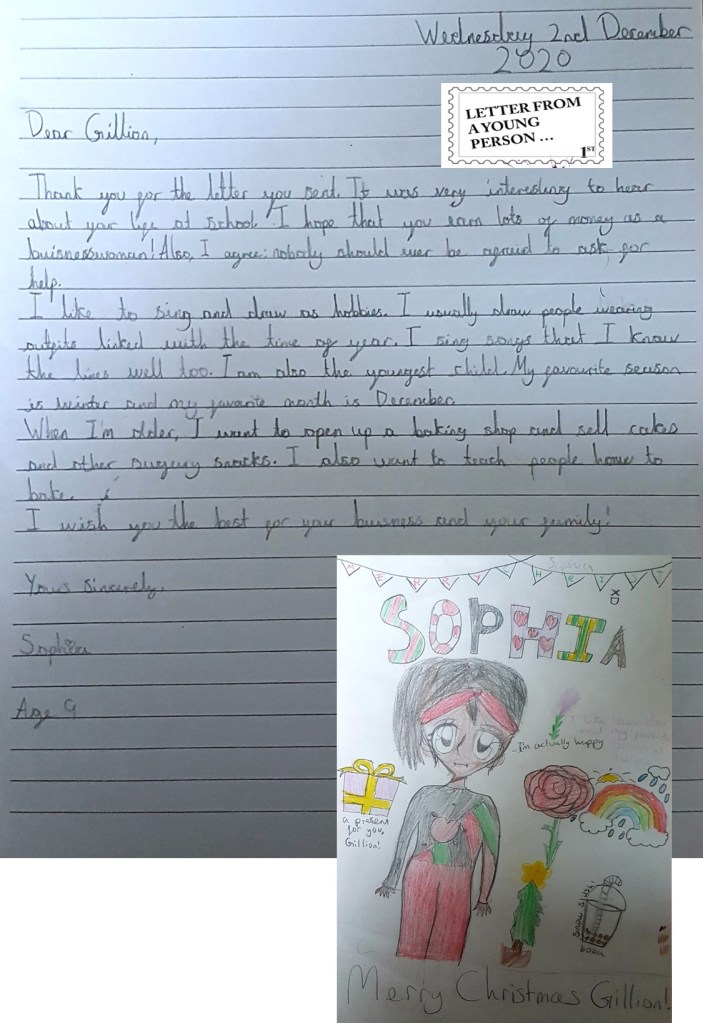 Wednesday 2nd December
2020
LETTER FROM
A YOUNG
PERSON ...
1ST
Dear Gillion,
Thank you for the letter you sent. It was very interesting to hear
about your life at school. I hope that you earn lots of money as a
buisnesswoman! Also, I agree: nobody should ever be afraid to ask for
help.
I like to sing and draw as hobbies. I usually draw people wearing
outfits linked with the time of year. I sing songs that I know
the lines well too. I am also the youngest child. My favourite season
is winter and my favorite month is December
When I'm older, I want to open up a baking shop and sell cakes
and other sugary snacks. I also want to teach people how to
bake.
I wish you the best for your buisness and your family!
Yours sincerely,
Sophia
Age 9
MERRY CHRIST
SOPHIA
XD
I'm actually happy
a present
for you,
Gillion!
boba
Merry Christmas Gillion!